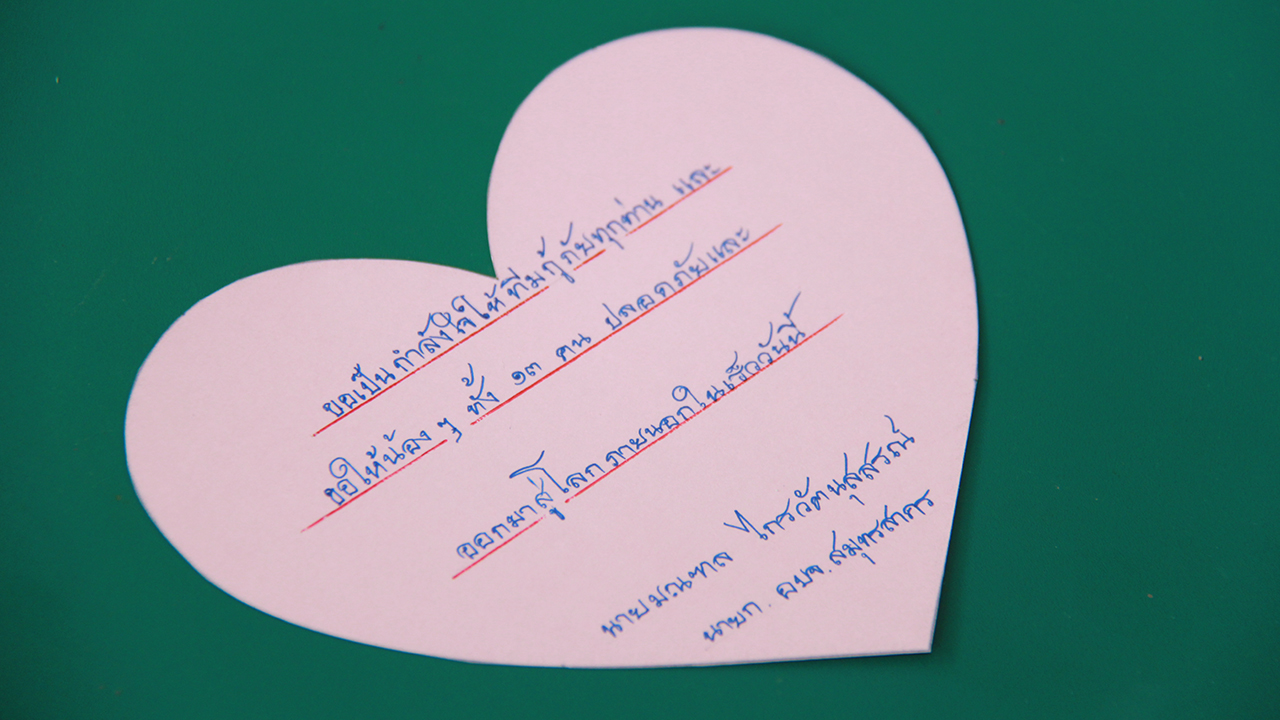 ขอเป็นกำลังใจให้ทีมกู้ภัยทุกท่าน และ
ขอให้น้อง ๆ ทั้ง ๑๓ คน ปลอดภัยและ
ออกมาสู่โลกภายนอกในเร็ววันนี้
นายมณฑล ไกรวัตนุสสรณ์
นายก. อบจ.สมุทรสาคร